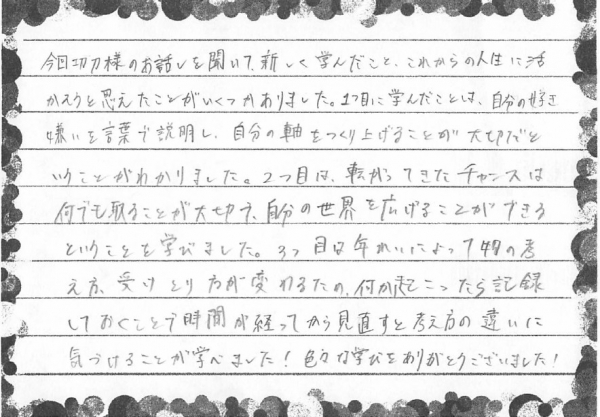 今回功刀様のお話しを聞いて、新しく学んだこと、これからの人生に活
かそうと思えたことがいくつかありました。1つ目に学んだことは、自分の好き
嫌いを言葉で説明し、自分の軸をつくり上げることが大切だと
いうことがわかりました。2つ目は、転がってきたチャンスは
何でも取ることが大切で、自分の世界を広げることができる
ということを学びました。3つ目は年れいによって物の考
え方、受けとり方が変わるため、何か起こったら記録
しておくことで時間が経ってから見直すと考え方の違いに
気づけることが学べました!色々な学びをありがとうございました!